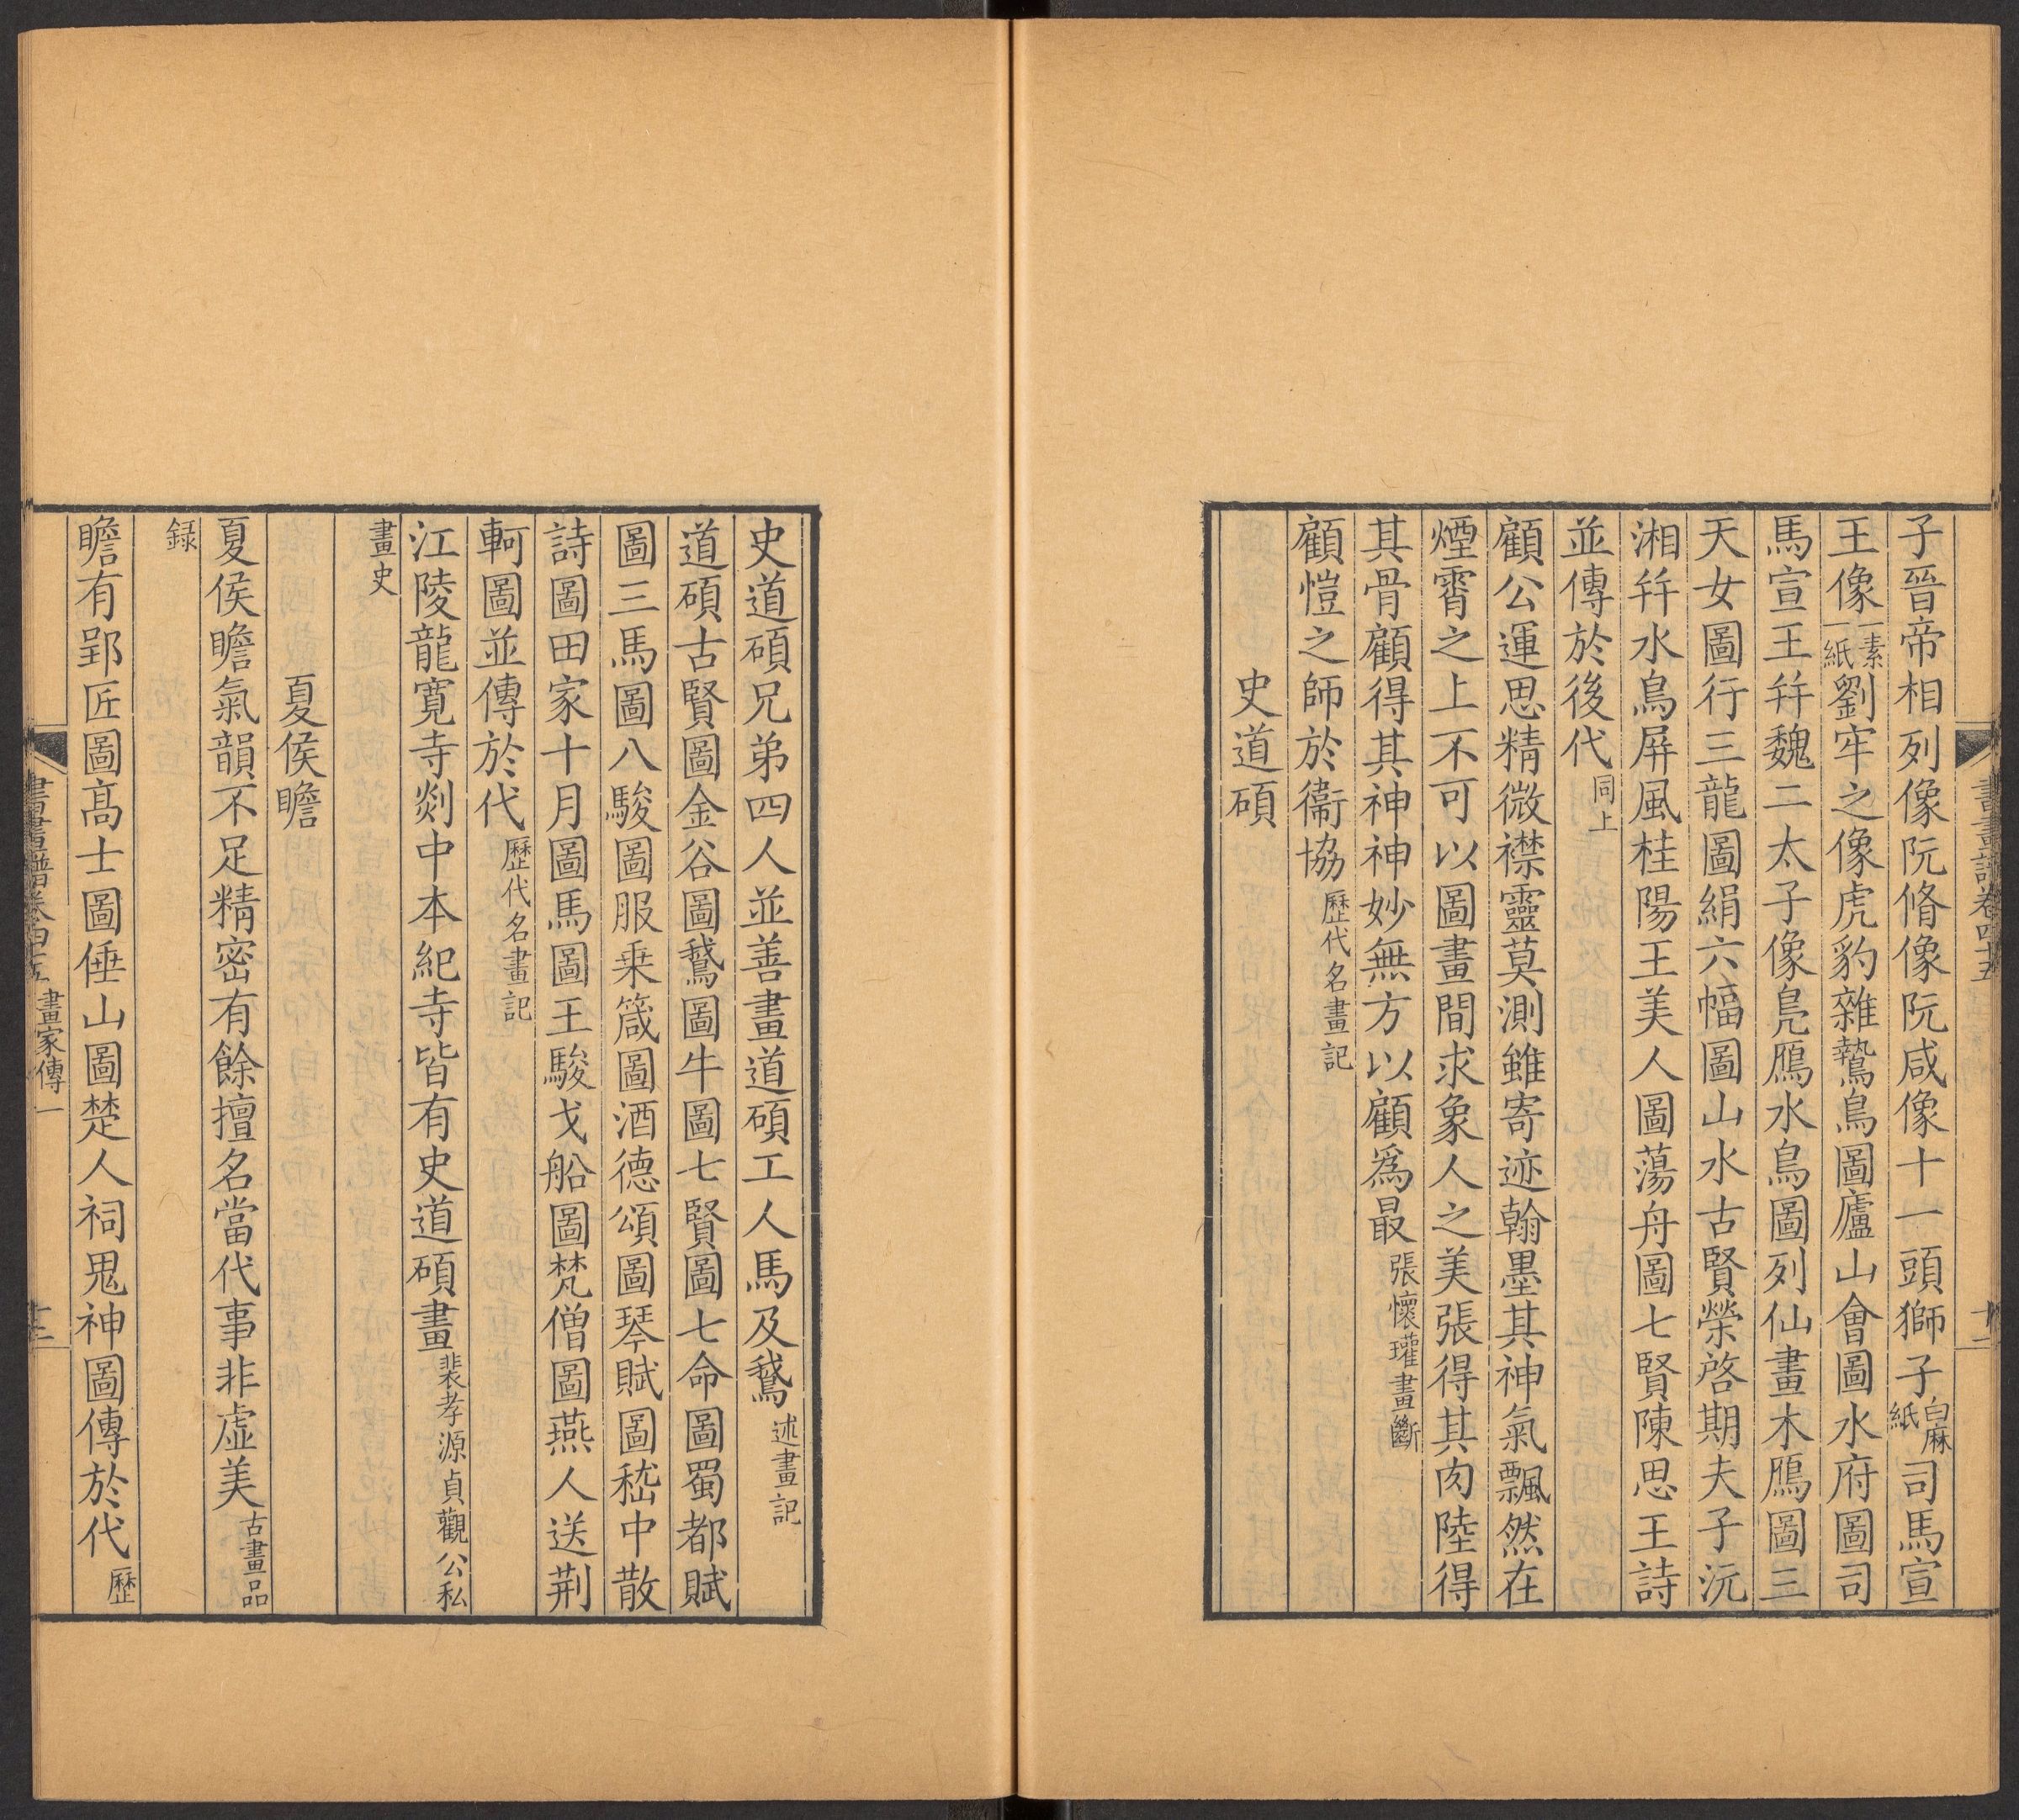 書畫譜卷四十五
十二
子晉帝相列像阮脩像阮咸像十一頭獅子白麻紙司馬宣
王像一素一紙劉牢之像虎豹雜鷙鳥圖廬山會圖水府圖司
馬宣王并魏二太子像鳧鴈水鳥圖列仙畫木鴈圖三
天女圖行三龍圖絹六幅圖山水古賢榮啓期夫子沅
湘并水鳥屏風桂陽王美人圖蕩舟圖七賢陳思王詩
並傳於後代同上
顧公運思精微襟靈莫測雖寄迹翰墨其神氣飄然在
煙霄之上不可以圖畫間求象人之美張得其肉陸得
其骨顧得其神神妙無方以顧爲最張懷瓘畫斷
顧愷之師於衞協歷代名畫記
史道碩
史道碩兄弟四人並善畫道碩工人馬及鵞述畫記
道碩古賢圖金谷圖鵞圖牛圖七賢圖七命圖蜀都賦
圖三馬圖八駿圖服乗箴圖酒德頌圖琴賦圖嵇中散
詩圖田家十月圖馬圖王駿戈船圖梵僧圖燕人送荆
軻圖並傳於代歷代名畫記
江陵龍寬寺剡中本紀寺皆有史道碩畫裴孝源貞觀公私
畫史
夏侯瞻
夏侯瞻氣韻不足精密有餘擅名當代事非虚美古畫品
録
瞻有郢匠圖髙士圖倕山圖楚人祠鬼神圖傳於代歷
書畫譜卷四十五 畫家傳一
十二